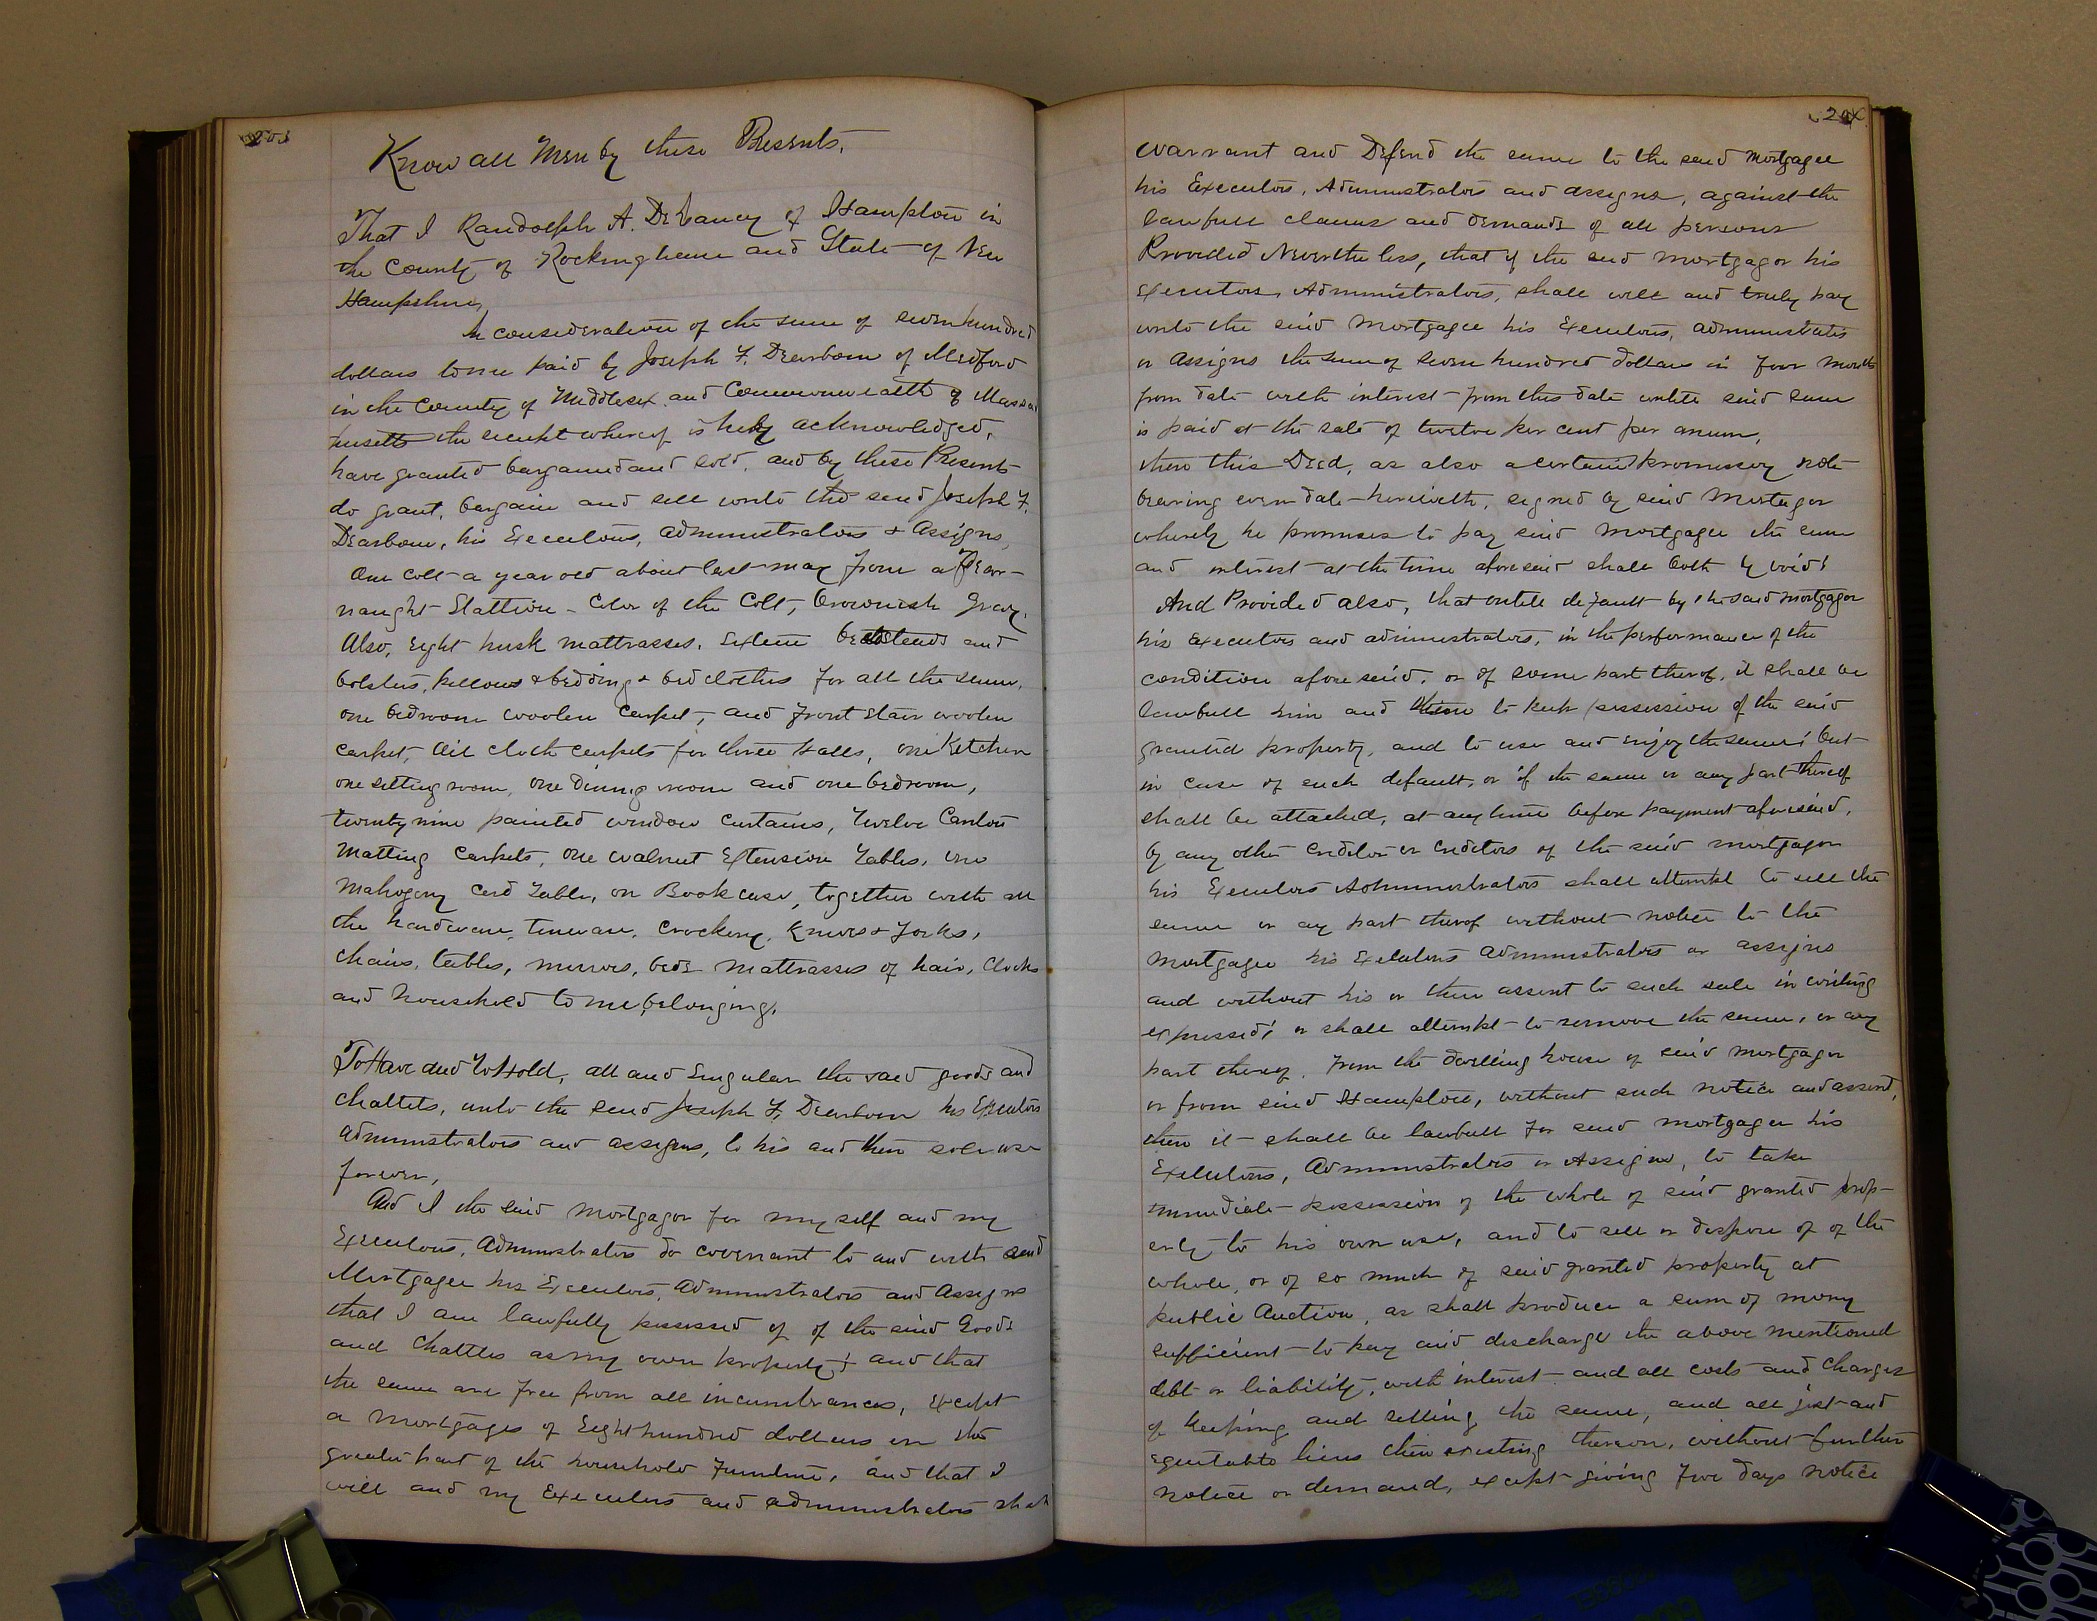 203
Know all Men by these Presents.
That I Randolph A. DeLancey of Hampton in
the County of Rockingham and State of New
Hampshire,
In consideration of the sum of seven hundred
dollars to me paid by Joseph F. Dearborn of Medford
in the County of Middlesex and Commonwealth of Massa
husetts the receipt whereof is hereby acknowledged,
have granted bargained and sold, and by these Presents
do grant, bargain and sell unto the said Joseph F.
Dearborn, his Executors, administrators & Assigns,
One Colt a year old about last may from a Fear-
naught Stallion - Color of the Colt, brownish Gray.
Also, Eight husk mattrasses, sixteen bedsteads and
bolsters, pillows & bedding & bed clothes for all the same,
one bedroom woolen Carpet, and front stair woolen
carpet, oil cloth carpets for three halls, one Kitchen
one sitting room, one Dining room and one bedroom,
twenty nine painted window curtains, Twelve Canton
Matting Carpets, one walnut Extension Tables, one
Mahogany Card Table, on Book case, together with all
the hardware, tinware, Crockery, Knives & Forks,
Chairs, tables, mirrors, beds mattrasses of hair, Clocks
and household to me belonging.
To Have and to Hold, all and Singular the said goods and
Chattels, unto the said Joseph F. Dearborn his Executors
administrators and assigns, to his and their sole use
forever,
And I the said mortgagor for my self and my
Executors, administrators do covenant to and with said
Mortgagee his Executors, administrators and Assigns
that I am lawfully possessed of of the said Goods
and Chattles as my own property; and that
the same are free from all incumbrances, Except
a mortgages of Eight hundred dollars on the
greater part of the household Furniture, and that I
will and my Executors and administrators shall
204
warrant and Defend the same to the said Mortgagee
his Executors, Administrators and assigns, against the
lawfull claims and demands of all persons
Provided Nevertheless, that if the said mortgagor his
Executors, Administrators, shall well and truly pay
unto the said Mortgagee his Executors, administrators
or Assigns the sum of seven hundred dollars in four months
from date with interest from this date untill said sum
is paid at the rate of twelve per cent per anum,
then this Deed, as also a certain promissory note
bearing even date herewith, signed by said Mortgagor
whereby he promises to pay said mortgagee the sum
and interest at the time aforesaid shall both be void;
And Provided also, that untill default by the said mortgagor
his executors and administrators, in the performance of the
condition aforesaid, or of some part therof, it shall be
lawfull him and them to keep possession of the said
granted property, and to use and enjoy the same; but
in case of such default, or if the same or any part thereof
shall be attached, at any time before payment aforesaid,
by any other creditor or creditors of the said mortgagor
his Executors Administrators shall attempt to sell the
same or any part therof without notice to the
mortgagee his Executors administrators or assigns
and without his or their assent to such sale in writing
expressed; or shall attempt to remove the same, or any
part therof. From the dwelling house of said mortgagor
or from said Hampton, without such notice and assent,
then it shall be lawfull for said mortgagee his
Executors, Administrators or Assigns, to take
immediate possession of the whole of said granted prop-
erty to his own use, and to sell or dispose of of the
whole, or of so much of said granted property at
public Auction, as shall produce a sum of mony
sufficient to pay and discharge the above mentioned
debt or liability, with interest and all costs and charges
of keeping and selling the same, and all just and
equitable liens then existing thereon, without further
notice or demand, except giving five days notice